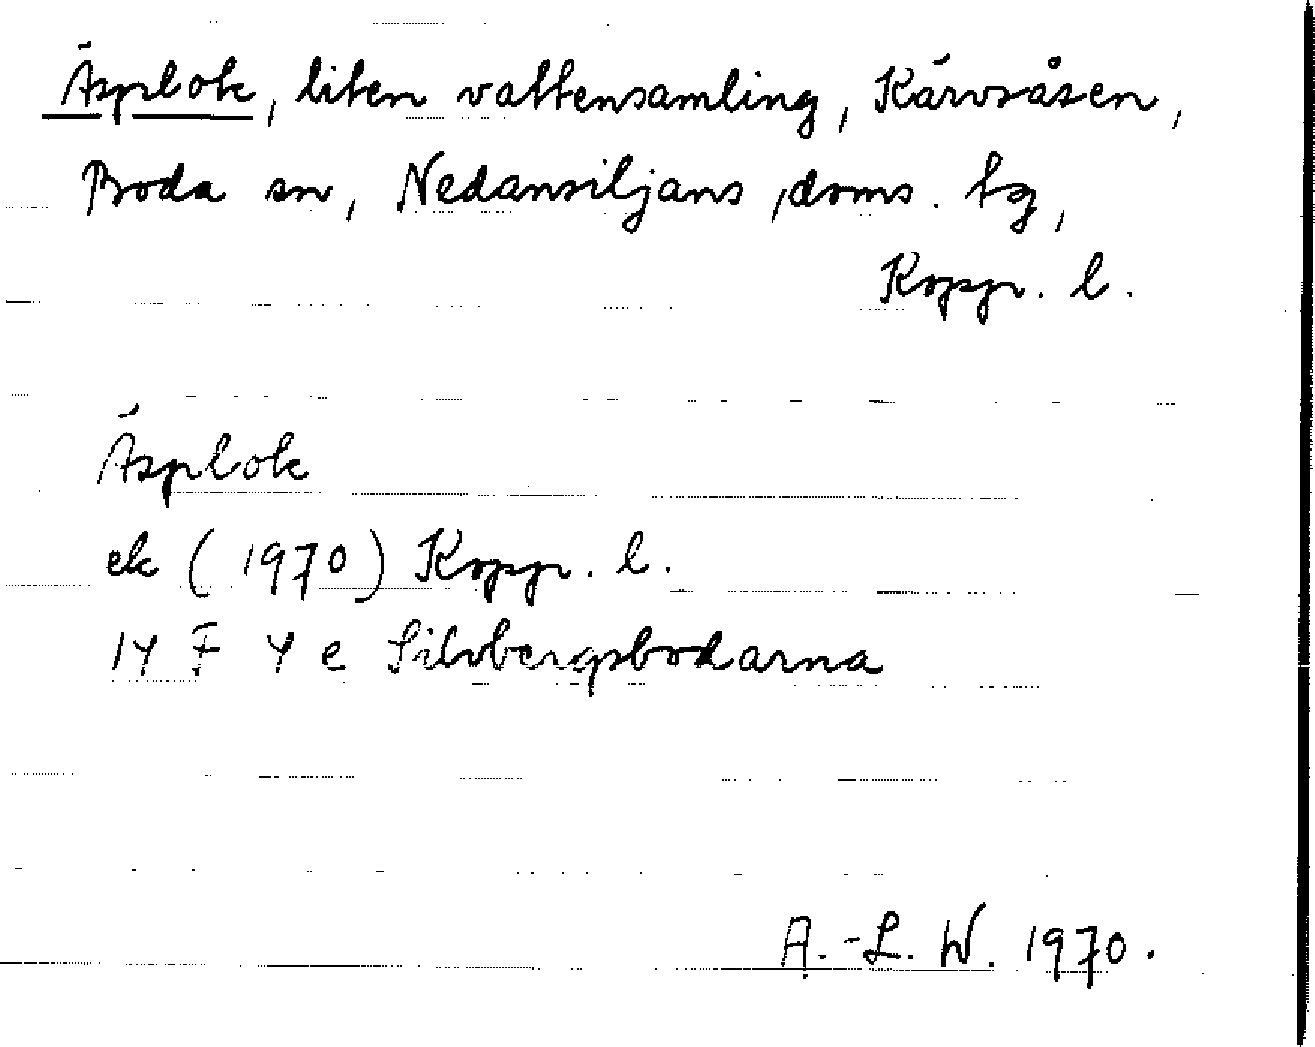 Äsplok, liten vattensamling, Kärvsåsen,
Boda sn, Nedansiljans doms. tg,
Kopp. l.
Äsplok
ek (1970) Kopp. l.
14 F 4 e Silvbergsbodarna
A.-L. W. 1970.